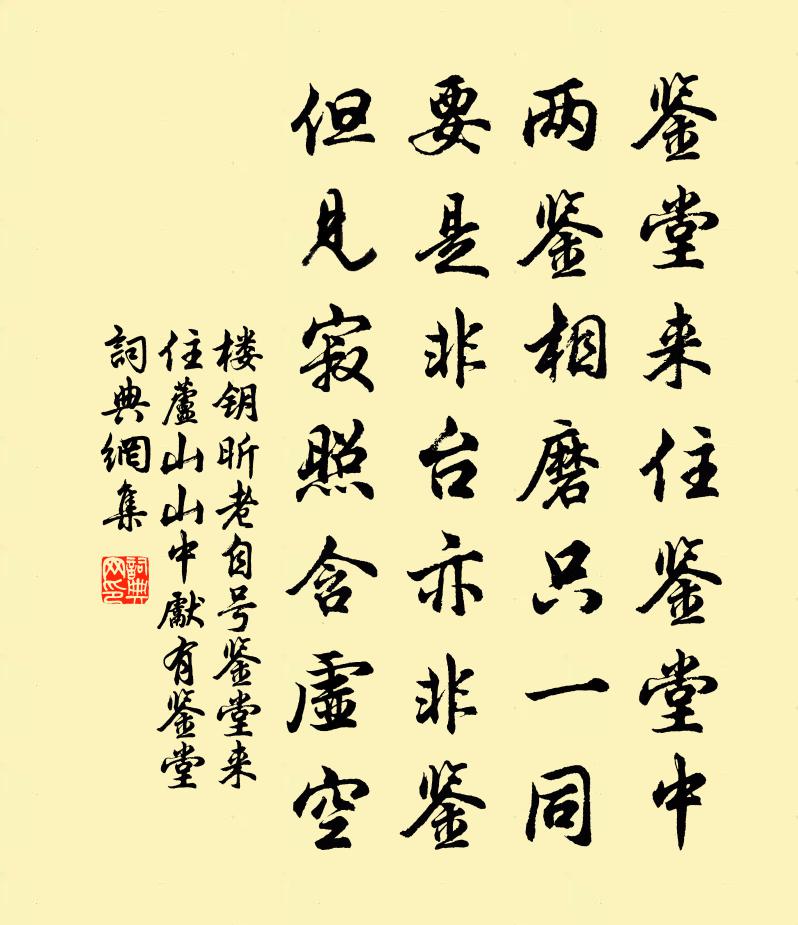 鉴堂来住鉴堂中
两鉴相磨只一同
要是非台亦非鉴
但见寂照含虚空
楼钥昕老自号鉴堂来
住蘆山山中獻有鉴堂
詞典網集
詞典网印